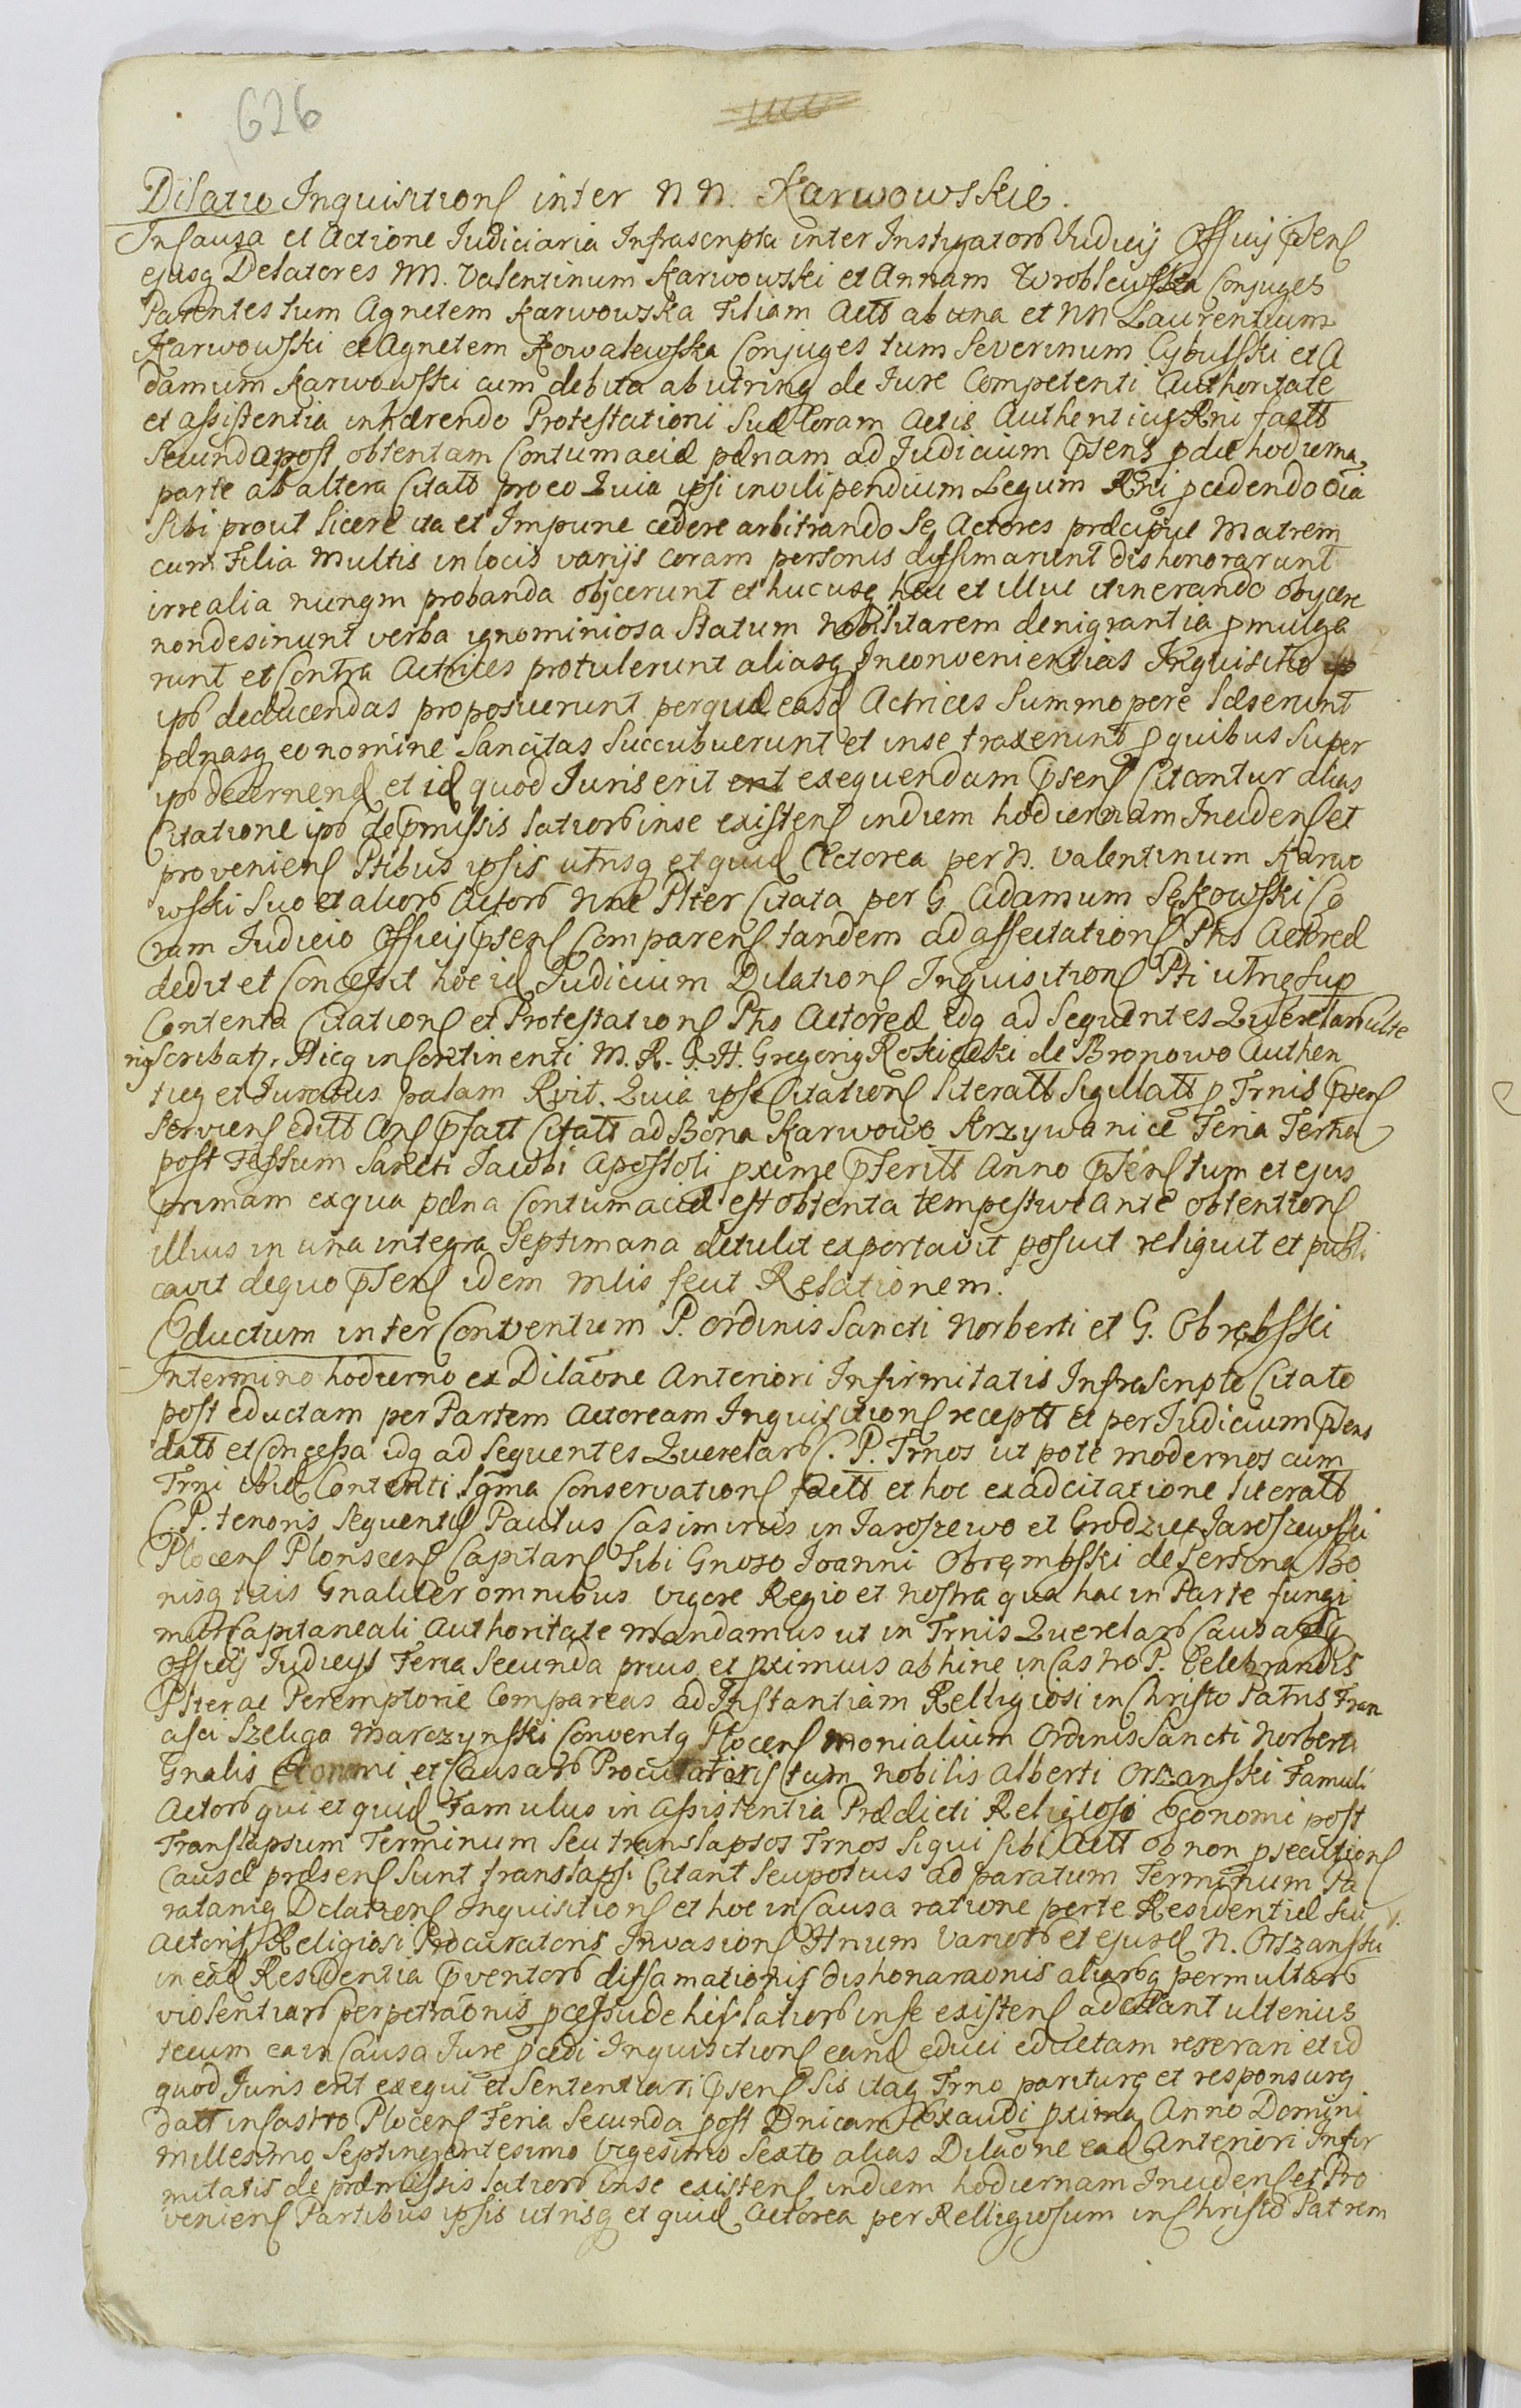 626
Dilatio Inquisitions inter N N. Karwowskie.
In Causa et Actione Judiciaria Infrascripta inter Instigatorb Judicij Officij pnsens
ejusq Delatores NN. Valentinum Karwowski et Annam Wroblewska Conjuges
Parentes tum Agnetem Karwowska Filiam Actt ab una et NN Laurentium
Karwowski et Agnetem Kowalewska Conjuges tum Severinum Cybulski et A
damum Karwowski cum debita ab utrinq de Jure Competenti Authoritate
et assistentia inhærendo Protestationi Suæ Coram Actis Authenticis Rni factt
Secunda post obtentam Contumaciæ pænam ad Judicium pnsens p die hodierna
parte ab altera Citatt pro eo Quia ipsi in vilipendium Legum Rni pcedendo oia
Sibi prout licere ita et Impune cedere arbitrando Se Actores præcipue Matrem
cum Filia Multis in locis varijs coram personis diffamarunt dishonorarunt
irrealia nunqm probanda objecerunt et hucusq huc et illuc itinerando objicere
non desinunt verba ignominiosa Statum Nobilitarem denigrantia pmulga
runt et Contra Actrices protulerunt aliasq Inconvenientias Inquisitio
ipb deducendas proposuerunt per quæ easd Actrices Summopere Læserunt
pænasq eo nomine Sancitas Succubuerunt et in se traxerunt p quibus Super
ipb decernend et id quod Juris erit exequendum pnsens Citantur alias
Citatione ipb de pmissis latiorb in se existens in diem hodiernam Incidens et
proveniens Ptibus ipsis utrisq et quid Actorea per N. Valentinum Karwo
wski Suo et aliorb Actorb Nne Plter Citata per G Adamum Sękowski Co
ram Judicio Officij pnsens Comparens tandem ad affectations Ptis Actoreæ
dedit et Concessit hoc id Judicium Dilations Inquisitions Pti utrq Sup
Contenta Citations et Protestations Ptis Actoreæ idq ad Sequentes Querelarb ulte
riq Scribatr. Hicq in Continenti M. R. G. H. Gregoriq Rokicki de Bronowo Authen
ticq et Juratus palam Rvit. Quia ipse Citations literatt Sigillatt p Trnis pnsens
Serviens editt Ons pfatt Citatt ad Bona Karwowo Krzywanice Feria Tertia
post Festum Sancti Jacobi Apostoli pxime pteritt Anno pnsens tum et ejus
primam ex qua pæna Contumaciæ est obtenta tempestive ante obtentions
illius in una integra Septimana detulit exportavit posuit reliquit et publi
cavit de quo pnsens idem mlis fecit Relationem.
Eductum inter Conventum P. Ordinis Sancti Norberti et G. Obrębski
In termino hodierno ex Dilaone Anteriori Infirmitatis Infrascripto Citato
post eductam per Partem Actoream Inquisitions receptt et per Judicium pnsens
datt et Concessa idq ad Sequentes Querelarb C. P. Trnos ut pote modernos cum
Trni ibid Contenti Lgma Conservations factt et hoc ex adcitatione literatt
C. P. tenoris Sequentis Paulus Casimirus in Jaroszewo et Grodziec Jaroszewski
Plocens Plonscens Capitans Tibi Gnoso Joanni Obręmbski de Persona Bo
nisq tuis Gnaliter omnibus vigore Regio et Nostra qua hac in Parte fungi
mur Capitaneali Authoritate Mandamus ut in Trnis Querelarb Causarq
Officij Judicijs Feria Secunda prius et pximius abhinc in Castro P. Celebrandis
Plter ac Peremptorie Compareas ad Instantiam Relligiosi in Christo Patris Fran
cisci Szeliga Marczynski Conventq Plocens Monialium Ordinis Sancti Norberti
Gnalis Economi et Causarb Procuratoris tum Nobilis Alberti Orszanski Famuli
Actorb qui et quid Famulus in Assistentia Prædicti Religiosi Economi post
Translapsum Terminum Seu translapsos Trnos Siqui Sibi Actt ob non psecutions
Causæ præsens sunt translapsi Citant Seu potius ad paratum Terminum Pa
ratamq Dilations Inquisitions et hoc in Causa ratione perte Residentiæ Sui
Actoris Religiosi Procuratoris Invasions Hnum Variorb et ejusd N. Orszanski
in ead Residentia pventorb diffamationis dishonoraonis aliarbq permultarb
violentiarb perpetraonis pcessu de his latiorb in se existens adcitant ulterius
tecum ea in Causa Jure pcedi Inquisitions eand educi eductam reserari et id
quod Juris erit exequi et Sententiari pnsens Sis itaq Trno pariturq et responsurq
datt in Castro Plocens Feria Secunda post Dnicam Exaudi pxima Anno Domini
Millesimo Septingentesimo Vigesimo Sexto alias Dilaone ead Anteriori Infir
mitatis de præmissis latiorb in se existens in diem hodiernam Incidens et Pro
veniens Partibus ipsis utrisq et quid Actorea per Relligiosum in Christo Patrem